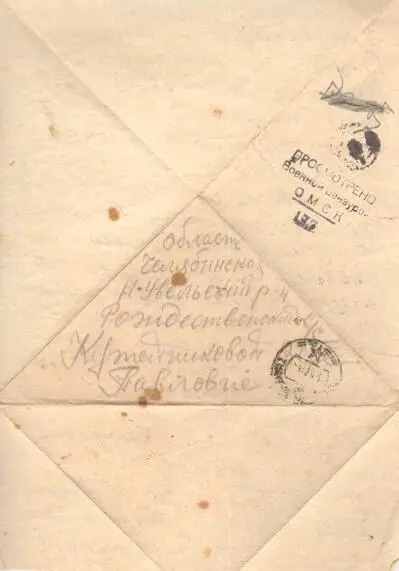 ПРОСМОТРЕНО
Военной Цензурой
ОМСК
область
Челябинская
Н-Увельский р-н
Рождественский с/с
Павловне